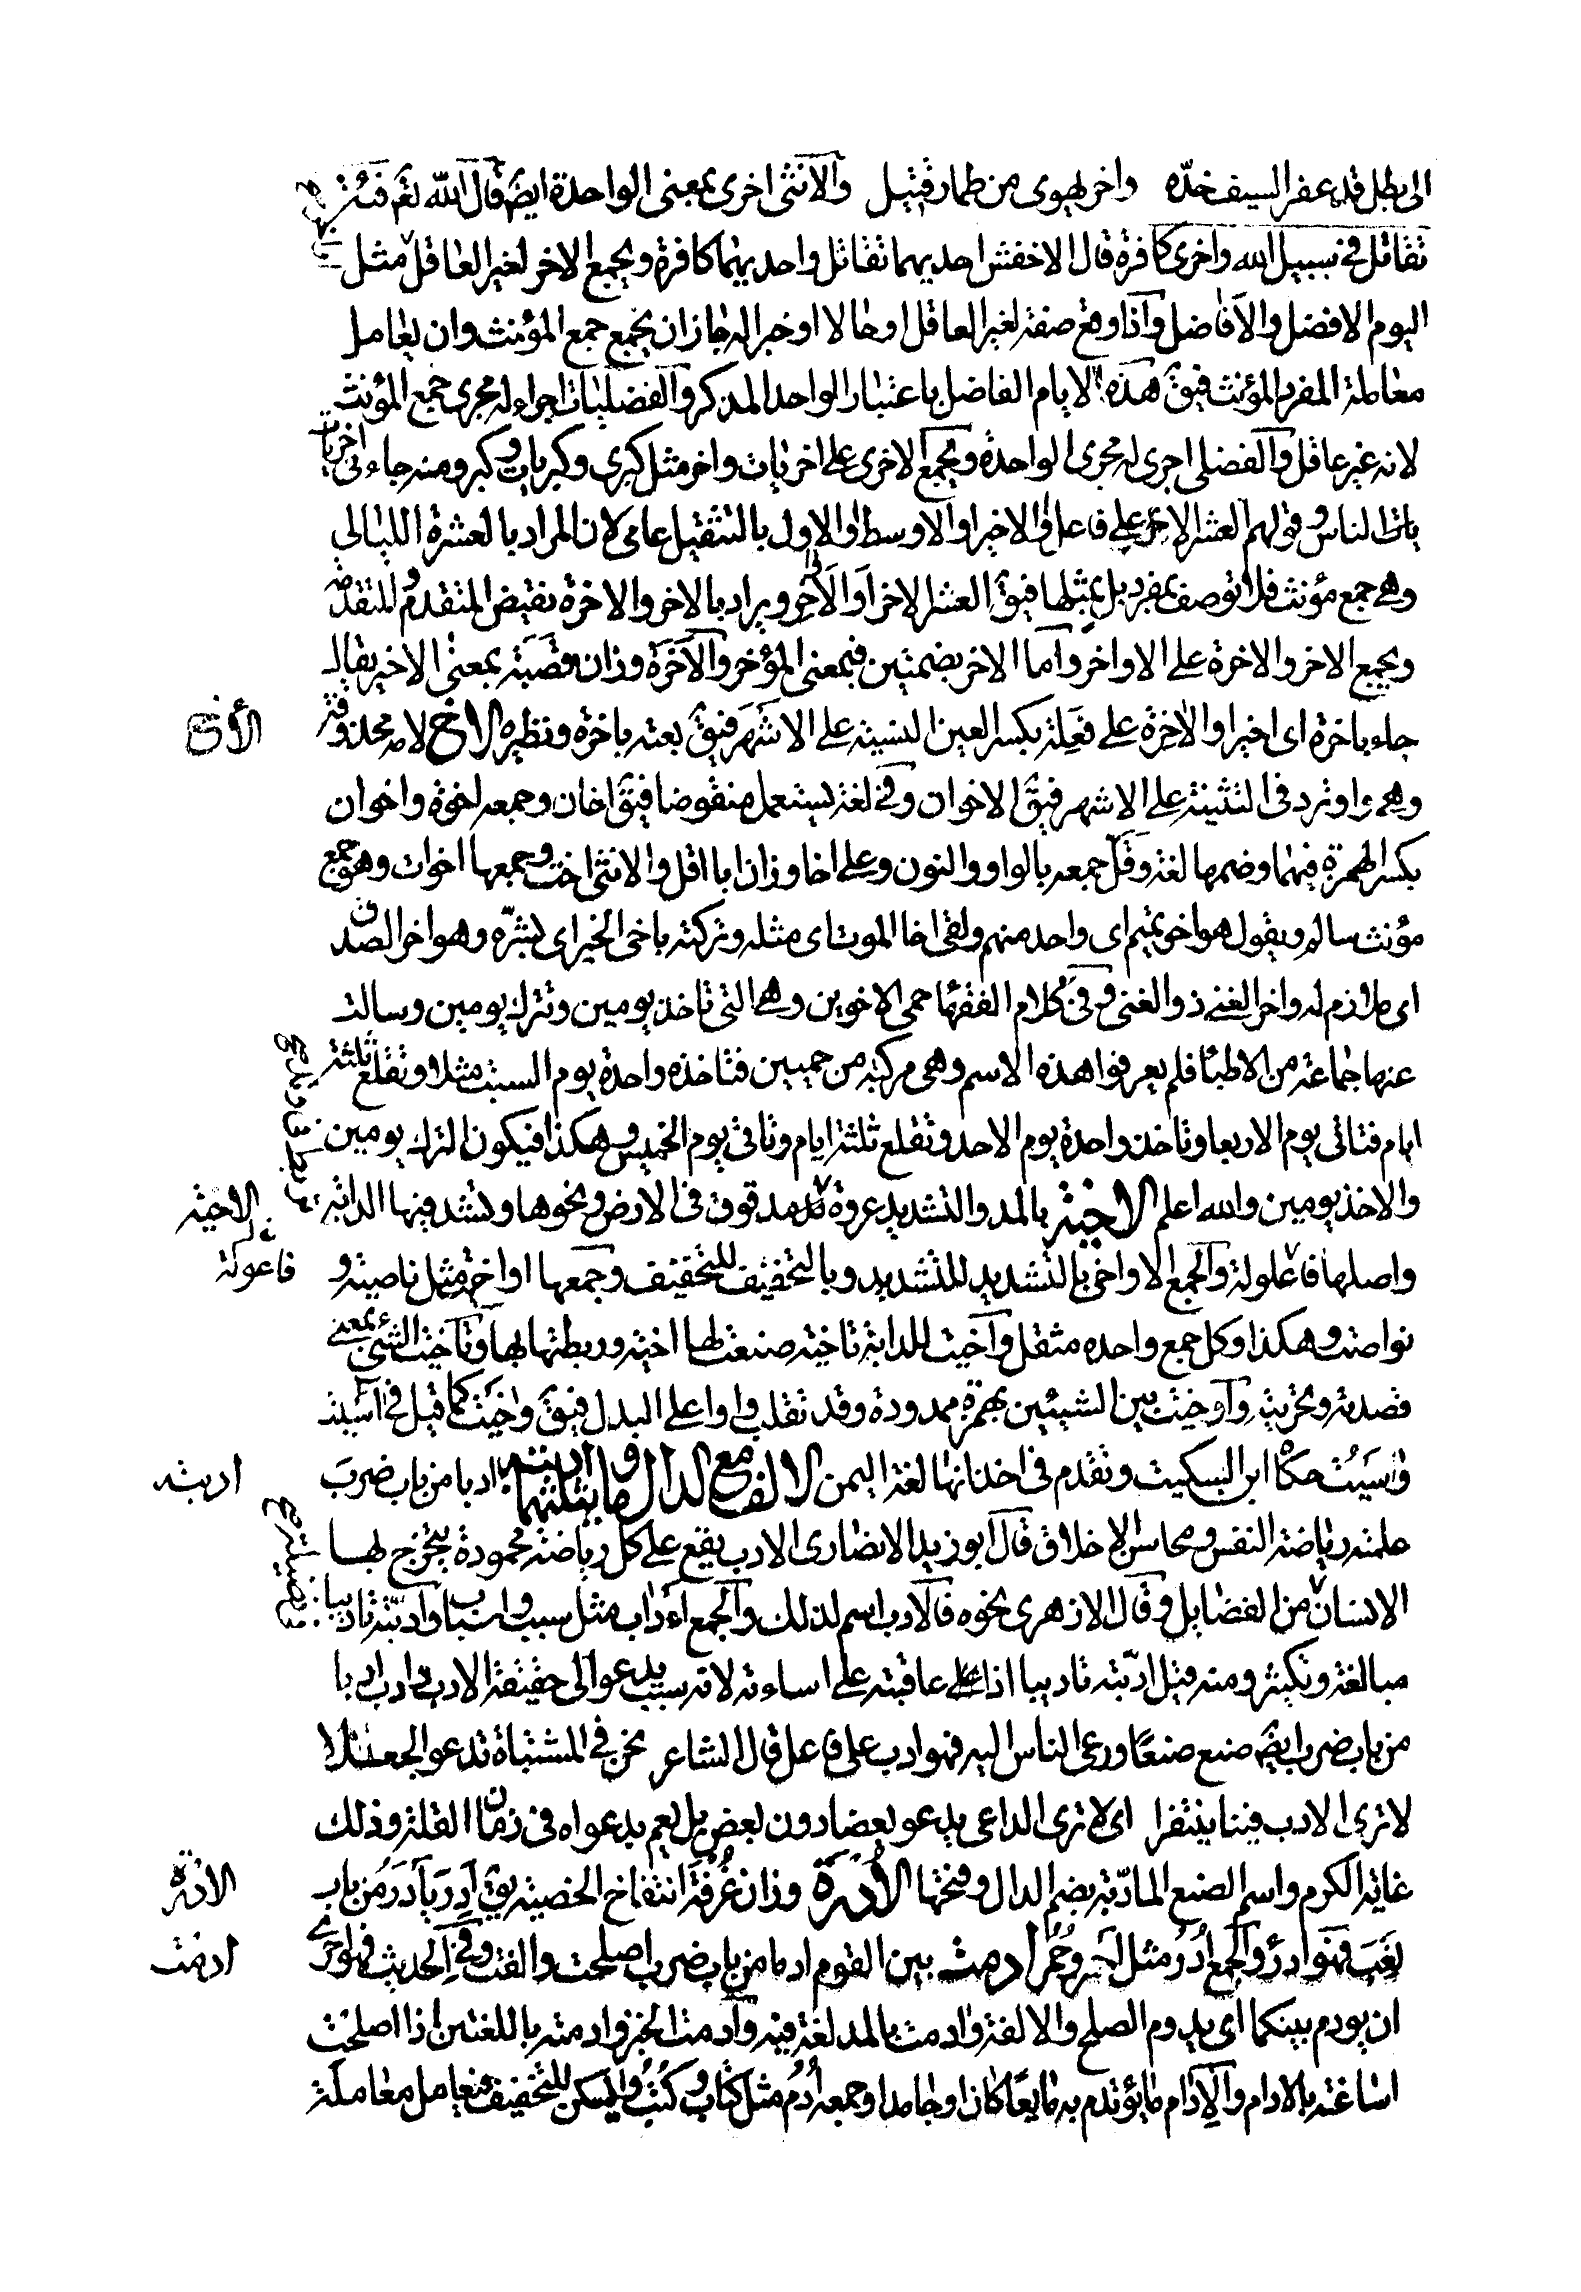 الى بطل قد عفر السيف خده واخر يهوى من طمار قتيل والانثى اخرى بمعنى الواحدة ايضا قال الله تع فئة
تقاتل فى سبيل الله واخرى كافرة قال الاخفش احديهما تقاتل واحديهما كافرة ويجمع الاخر لغير العاقل مثل
اليوم الافضل والافاضل واذا وقع صفة لغير العاقل او حالا او خبرا له جاز ان يجمع جمع المؤنث وان يعامل
معاملة المفرد المؤنث فيق هذه الايام الفاضل باعتبار الواحد المذكر والفضليات اجراء له مجرى جمع المؤنث
لانه غير عاقل والفضلى اجرى له مجرى الواحدة ويجمع الاخرى على اخريات واخر مثل كبرى وكبريات وكبر ومنه جاء فى اخريات
يات الناس وقولهم العشر الاخر على فاعل والاخير او الاوسط والاول بالتثقيل عامى لان المراد بالعشرة الليالى
وهى جمع مؤنث فلا توصف بمفرد بل بمثلها فيق العشر الاخر او الاخر ويراد بالاخر والاخرة نقيض المتقدم والمتقدمة
ويجمع الاخر والاخرة على الاواخر واما الاخر بضمتين فبمعنى المؤخر والاخرة وزان قصبة بمعنى الاخير يقال
جاء باخرة اى اخيرا والاخرة على فعلة بكسر العين النسيئة على الاشهر فيق بعته باخرة ونظيره الاخ لامه محذوفة
الاخ
وهى واو ترد فى التثنية على الاشهر فيق الاخوان وفى لغة يستعمل منقوصا فيق اخان وجمعه اخوة واخوان
بكسر الهمزة فيهما وضمها لغة وقل جمعه بالواو والنون وعلى اخا وزان ابا اقل والانثى اخت وجمعها اخوات وهو جمع
مؤنث سالم ويقول هو اخو تميم اى واحد منهم ولقى اخا الموت اى مثله وتركته باخى الخير اى بشره وهو اخو الصدق
اى ملازم له واخو الغنى ذو الغنى وفى كلام الفقها حمى الاخوين وهى التى تاخذ يومين وتترك يومين وسالت
عنها جماعة من الاطبا فلم يعرفوا هذا الاسم وهى مركبة من حميين فتاخذه واحدة يوم السبت مثلا وتقلع ثلثة
ايام فتاتى يوم الاربعا وتاخذ واحدة يوم الاحد وتقلع ثلثة ايام وتاتى يوم الخميس وهكذا فيكون الترك يومين
والاخذ يومين والله اعلم الاخية بالمد والتشديد عروة تدمدقوق فى الارض ونحوها وتشد فيها الدابة
الاخية
واصلها فاعلولة والجمع الاواخى بالتشديد للتشديد وبالتخفيف للتخفيف وجمعها اواخ مثل ناصية و
فاعولة
نواصت وهكذا وكل جمع واحده مثقل واخيت للدابة تاخية صنعت لها اخية وربطتها بها وتاخيت الشئ بمعنى
قصدته وتحريته واوخيت بين الشيئين بهمزة ممدودة وقد تقلب واوا على البدل فيق واخيت كما قيل فى اسيت
واسيت حكاه ابن السكيت وتقدم فى اخذ انها لغة اليمن الالف مع الدال وما يثلثهما ادبته ادبا من باب ضرب
ادبته
علمته رياضة النفس ومحاسن الاخلاق قال ابو زيد الانصارى الادب يقع على كل رياضة محمودة يتخرج بها
الانسان من الفضايل وقال الازهرى نحوه فالادب اسم لذلك والجمع اداب مثل سبب واسباب وادبته تاديبا
مبالغة وتكثير ومنه قيل ادبته تاديبا اذا عاقبته على اساءته لانه سبب يدعو الى حقيقة الادب وادب ادبا
من باب ضرب ايضا صنع صنعا ودعى الناس اليه فهو ادب على فاعل قال الشاعر نحن فى المشتاة ندعو الجفلا
لا ترى الادب فينا ينتقرا اى لا ترى الداعى يدعو بعضا دون بعض بل يعم بدعواه فى زمان القلة وذلك
غاية الكرم واسم الصنع المادبة بضم الدال وفتحها الادرة وزان غرفة انتفاخ الخصية يق ادر يادر من باب
الادرة
تعب فهو ادر والجمع ادر مثل احمر وحمر ادمت بين القوم ادما من باب ضرب اصلحت والفت وفى الحديث فهو احرى
ادمت
ان يودم بينكما اى يدوم الصلح والالفة وادمت بالمد لغة فيه وادمت الخبز وادمته باللغتين اذا اصلحت
اساغته بالادام والادام ما يؤتدم به مايعا كان او جامدا وجمعه ادم مثل كتاب وكتب ويسكن للتخفيف فيعامل معاملة